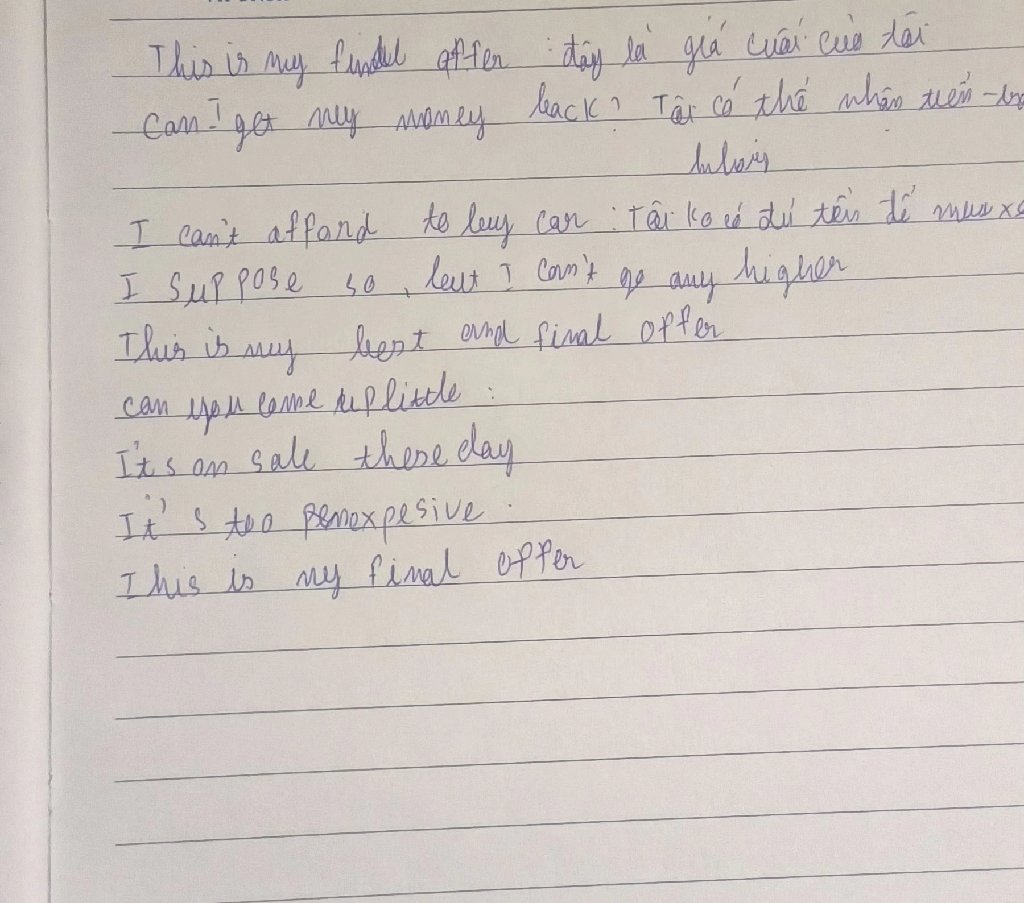 This is my final offer : đây là giá cuối của tôi
Can I get my money back? Tôi có thể nhận tiền
I can't affond to buy car : Tôi ko có đủ tiền để mua
I suppose so, but I can't go any higher
This is my best and final offer
can you come up little :
It's on sale these day
It's too expesive .
This is my final offer